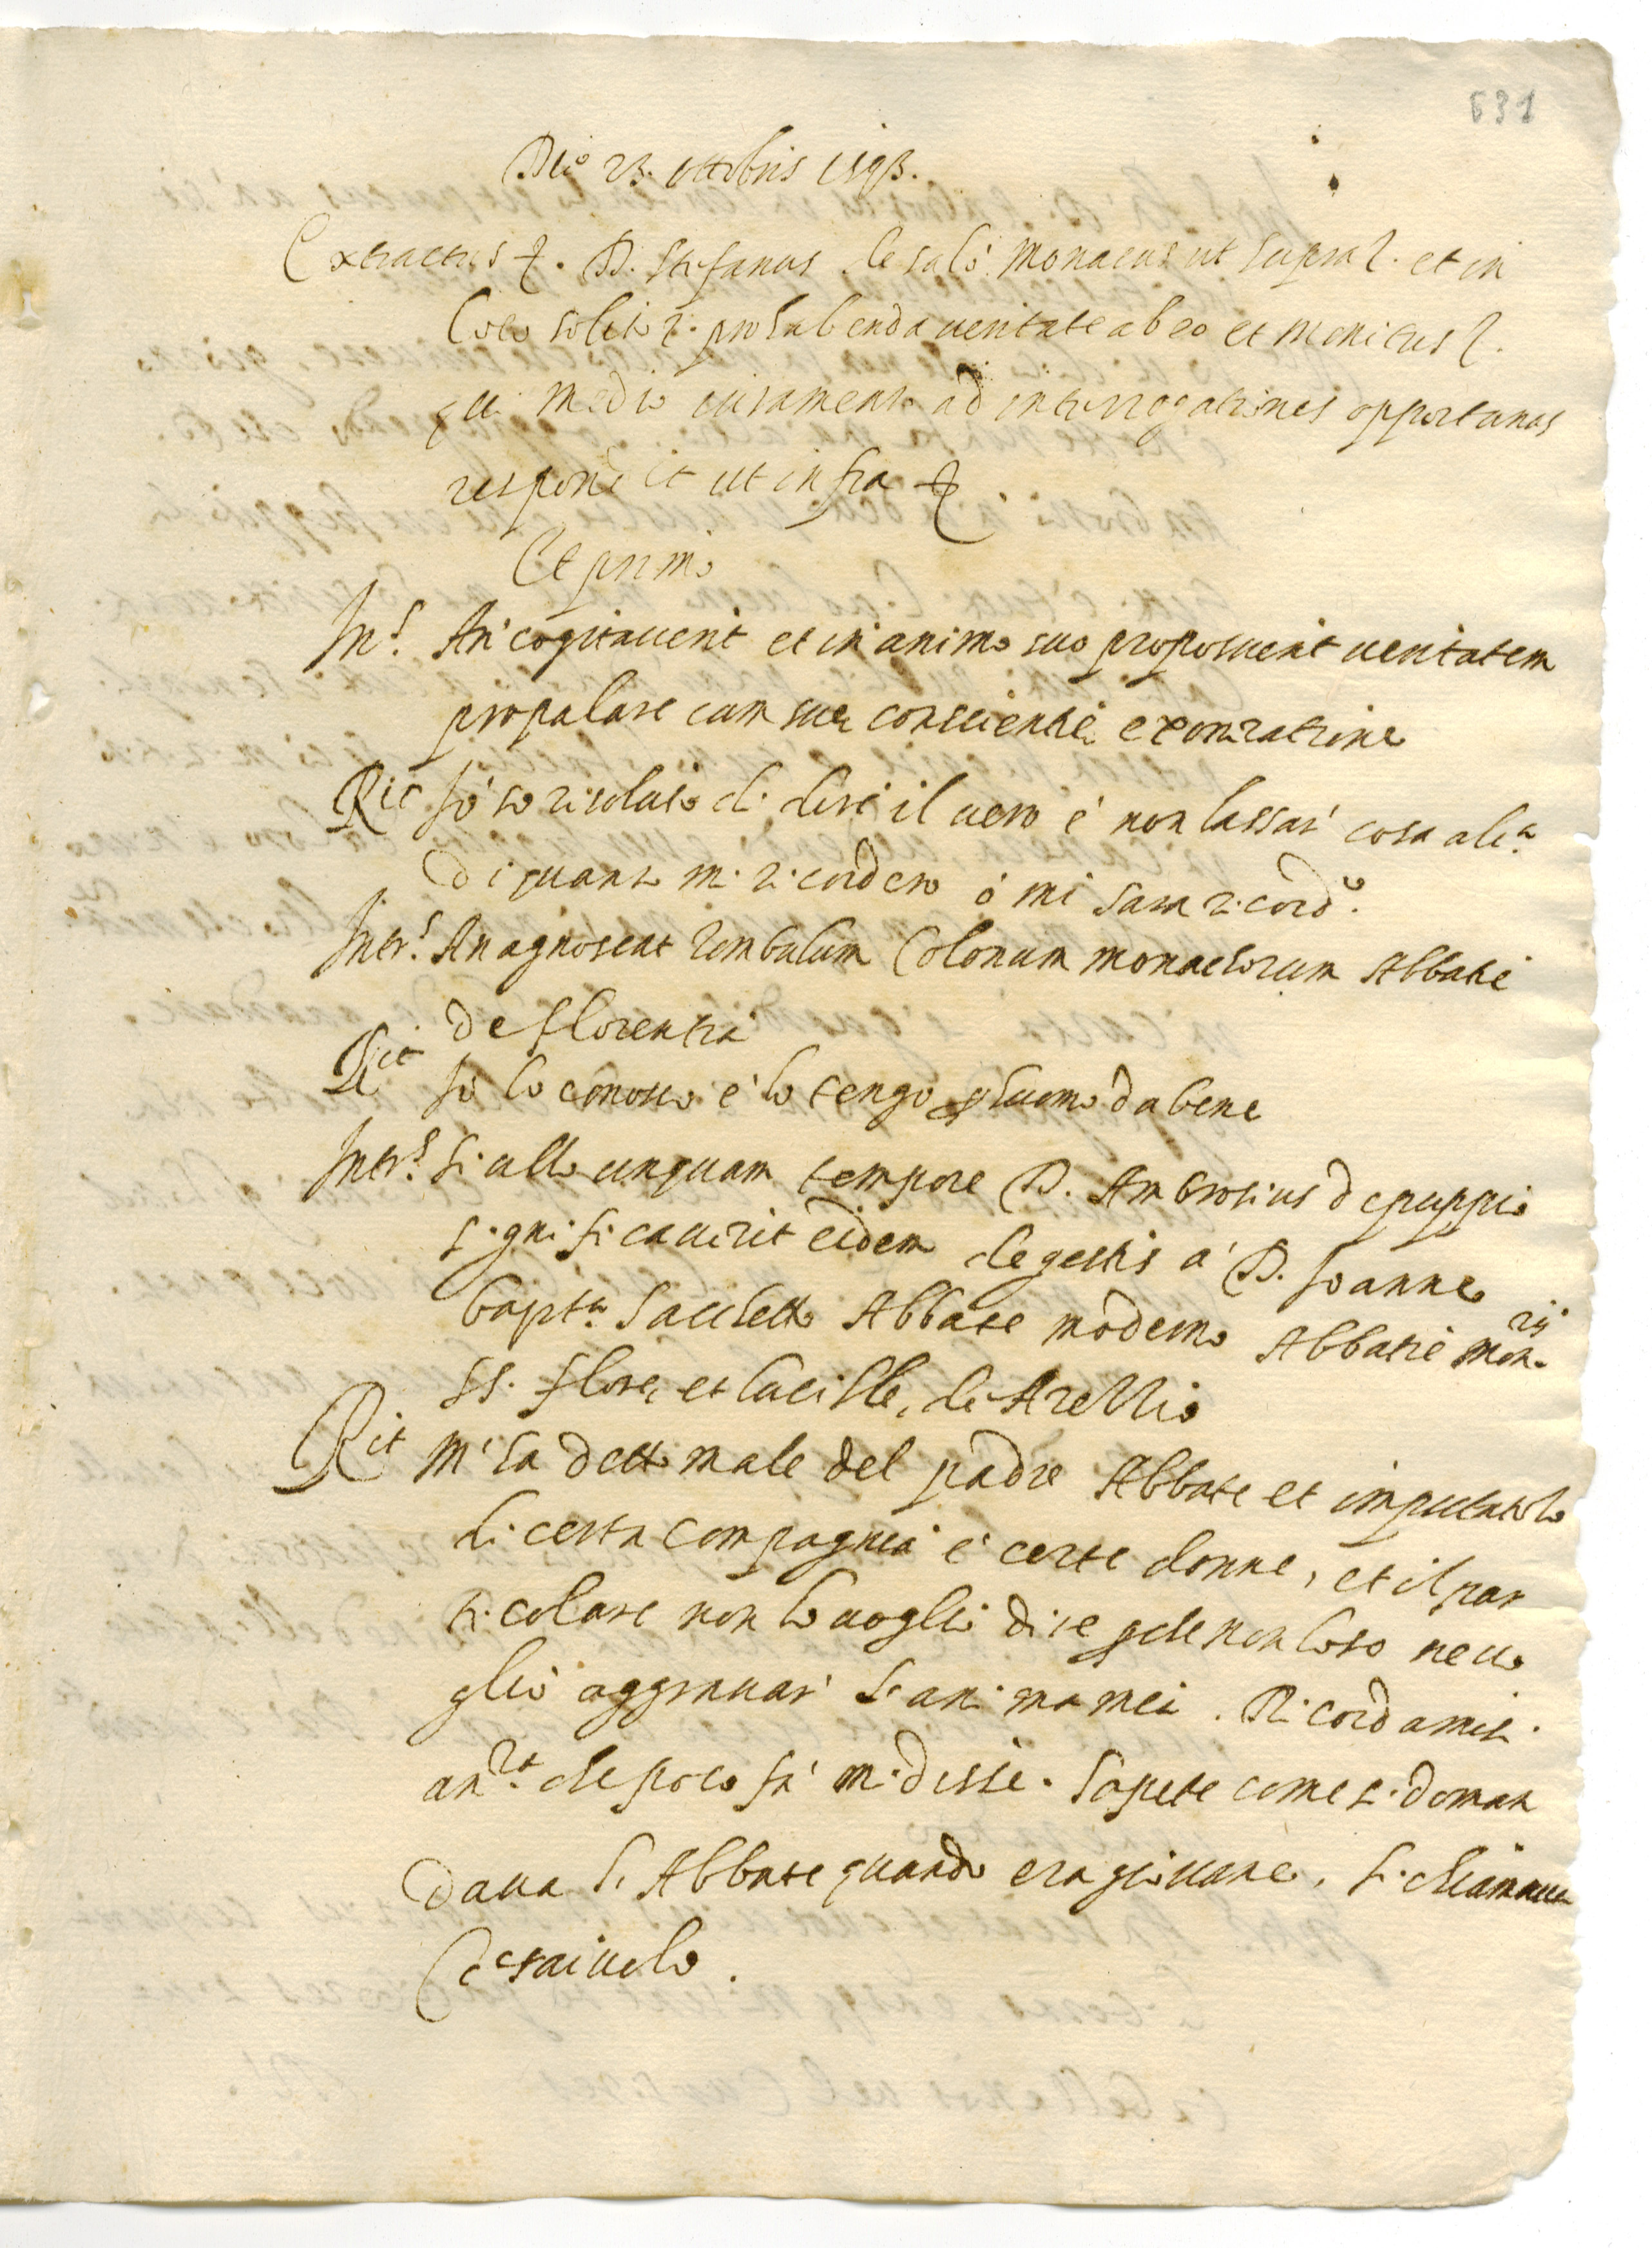 631
Die 23. ottobris 1593.
Extractus &. D. Stefanus de salò Monacus ut supra &. et in
loco solito &. pro habenda ueritate ab eo et monitus &.
qui medio iuramento ad interrogationes opportunas
respondit ut infra &
Et primo
Int.s An' cogitauerit et in animo suo proposuerit ueritatem
propalare cum sue conscientie exoneratione
Rit Io so risoluto di dire il uero e' non lassar' cosa alc.a
di quanto mi ricordero ò mi sara ricord.o
Inter.s An agnoscat Colonum monachorum Abbatie
de florentia
Rit Io lo conosco e' lo tengo p huomo da bene
Inter.s Si ullo unquam tempore D. Ambrosius de puppio
significauerit eidem de gestis a' D. Joanne
bapt.a Sacchetto Abbate moderno Abbatie mon.rij
SS. flore et lucille, de Aretio
Rit M' ha detto male del padre Abbate et imputatolo
di certa compagnia e' certe donne, et il par
ticolare non lo uoglio dire p che non lo so ne uo
glio aggrauar' l'anima mia. Ricordami
an.ra che poco fà mi disse. Sapete come si doman
daua l'Abbate quando era giouane, si chiamaua